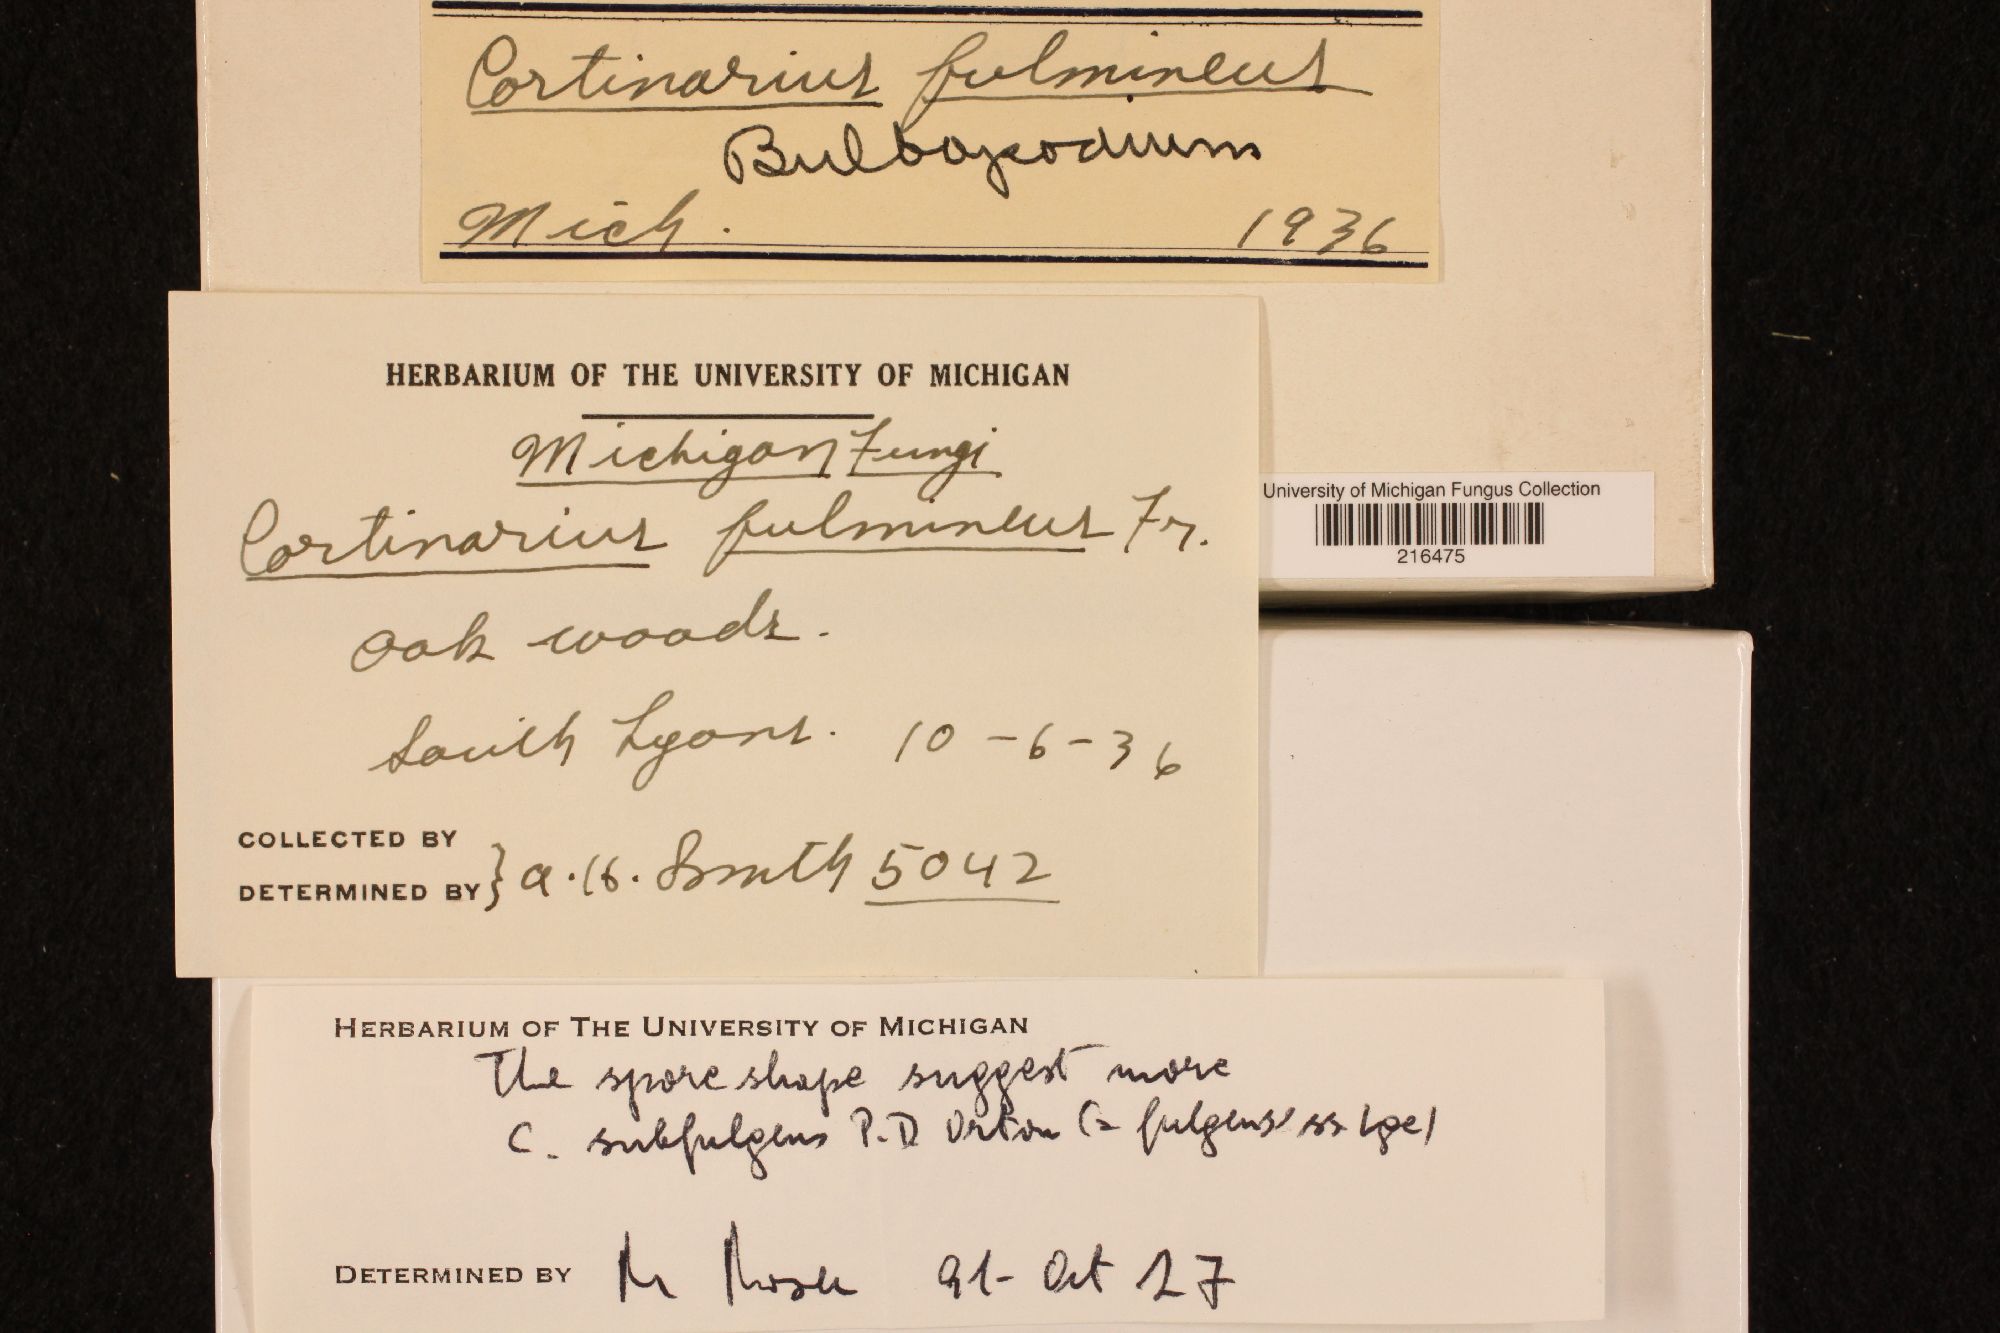 Cortinarius fulmineus
Bulbopodium
Mich. 1936
HERBARIUM OF THE UNIVERSITY OF MICHIGAN
Michigan Fungi
Cortinarius fulmineus Fr.
oak woods.
South Lyons. 10-6-36
COLLECTED BY
DETERMINED BY } A. H. Smith 5042
University of Michigan Fungus Collection
216475
HERBARIUM OF THE UNIVERSITY OF MICHIGAN
The spore shape suggest more
C. subfulgens P.D Orton (= fulgens' ss Lge)
DETERMINED BY M Moser 91- Oct 27